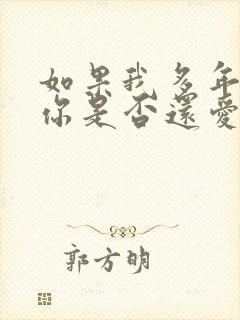 如果我多年
你是否還愛
郭方明